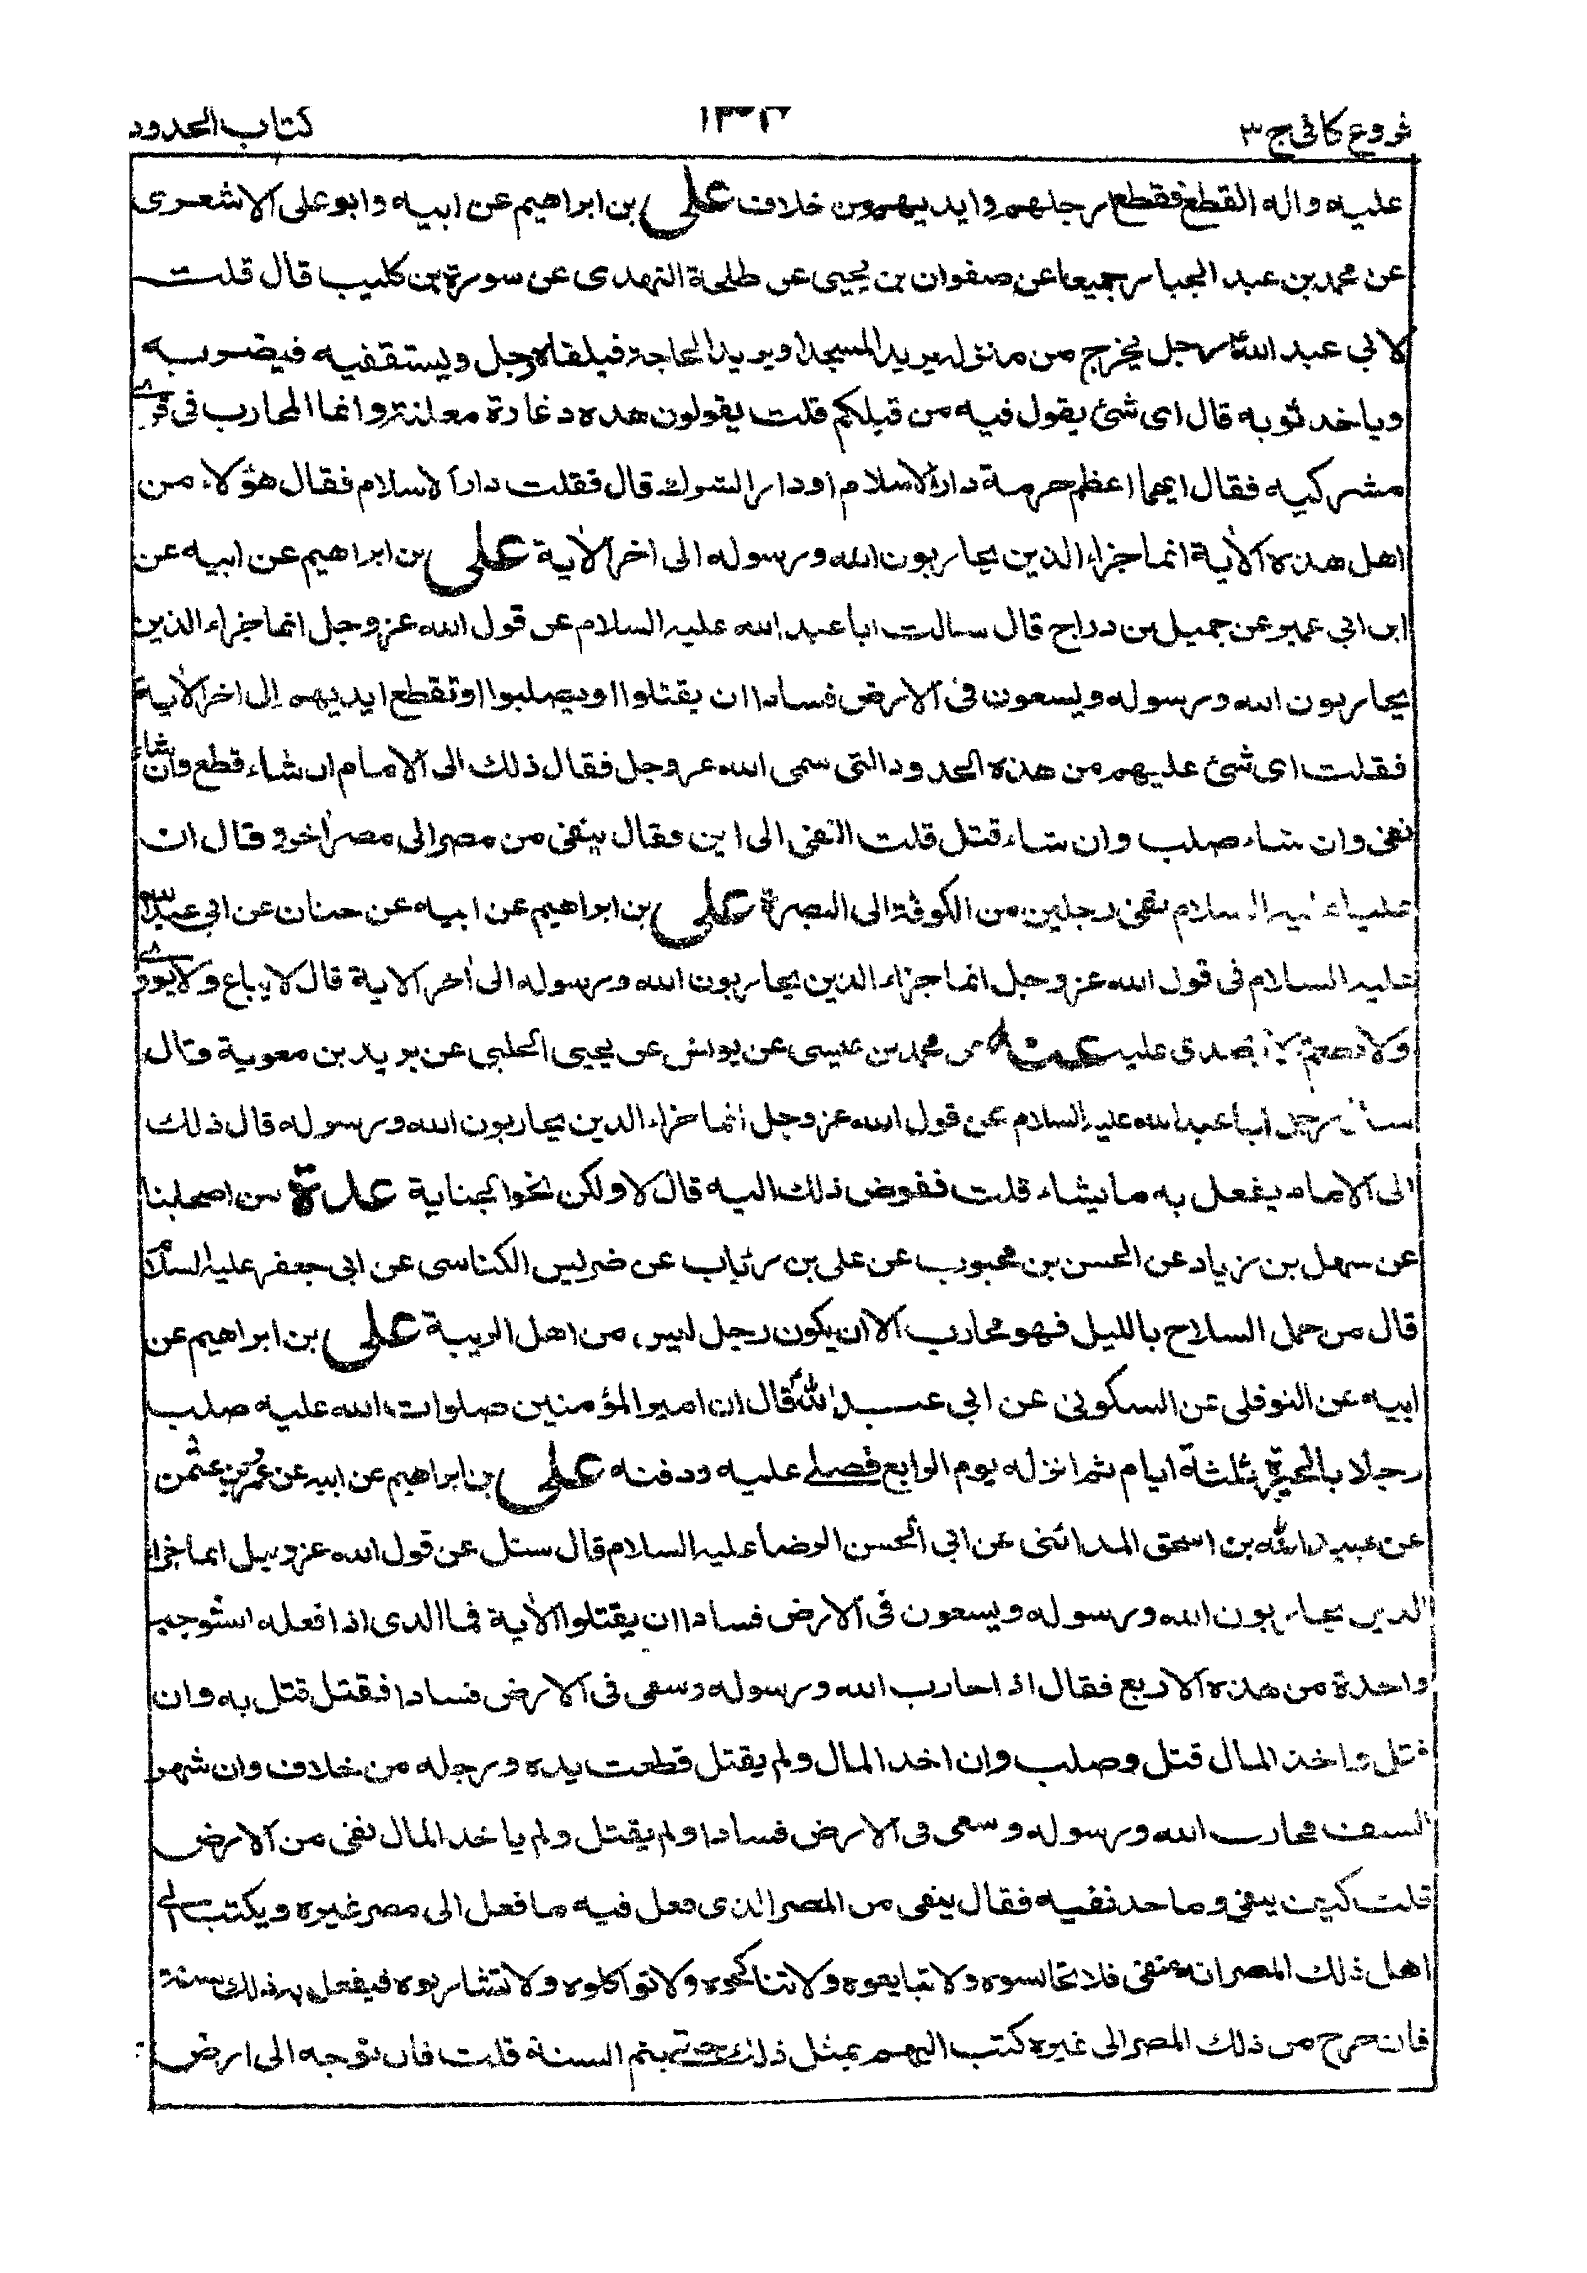 فروع کافی ج ۳
۱۳۳
کتاب الحدود
علیه واله القطع فقطع ارجلهم وایدیهم من خلاف علی بن ابراهیم عن ابیه وابو علی الاشعری
عن محمد بن عبد الجبار جمیعا عن صفوان بن یحیی عن طلحة النهدی عن سورة بن کلیب قال قلت
لابی عبد الله ع رجل یخرج من منزله یرید المسجد او یرید الحاجة فیلقاه رجل ویستقفیه فیضربه
ویاخذ ثوبه قال ای شئ یقول فیه من قبلکم قلت یقولون هذه دغارة معلنة وانما المحارب فی قری
مشرکیه فقال ایهما اعظم حرمة دار الاسلام او دار الشرك قال فقلت دار الاسلام فقال هؤلاء من
اهل هذه الآیة انما جزاء الذین یحاربون الله ورسوله الی اخر الآیة علی بن ابراهیم عن ابیه عن
ابن ابی عمیر عن جمیل بن دراج قال سالت ابا عبد الله علیه السلام عن قول الله عز وجل انما جزاء الذین
یحاربون الله ورسوله ویسعون فی الارض فسادا ان یقتلوا او یصلبوا او تقطع ایدیهم إلی اخر الآیة
فقلت ای شئ علیهم من هذه الحدود التی سمی الله عز وجل فقال ذلك الی الامام ان شاء قطع وان شاء
نفی وان شاء صلب وان شاء قتل قلت النفی الی این فقال ینفی من مصر الی مصر اخر وقال ان
علیا علیه السلام نفی رجلین من الکوفة الی البصرة علی بن ابراهیم عن ابیه عن حنان عن ابی عبد الله
علیه السلام فی قول الله عز وجل انما جزاء الذین یحاربون الله ورسوله الی أخر الایة قال لا یباع ولا یودی
ولا یطعم ولا یصدق علیه عنه عن محمد بن عیسی عن یونس عن یحیی الحلبی عن برید بن معویة قال
سال رجل ابا عبد الله علیه السلام عن قول الله عز وجل انما جزاء الذین یحاربون الله ورسوله قال ذلك
الی الامام یفعل به ما یشاء قلت ففوض ذلك الیه قال لا ولکن نحو الجنایة عدة من اصحابنا
عن سهل بن زیاد عن الحسن بن محبوب عن علی بن رئاب عن ضریس الکناسی عن ابی جعفر علیه السلام
قال من حمل السلاح باللیل فهو محارب الا ان یکون رجل لیس من اهل الریبة علی بن ابراهیم عن
ابیه عن النوفلی عن السکونی عن ابی عبد الله ع قال ان امیر المؤمنین صلوات الله علیه صلب
رجلا بالحیرة ثلثة ایام ثم انزله یوم الرابع فصلی علیه ودفنه علی بن ابراهیم عن ابیه عن عمرو بن عثمن
عن عبید الله بن اسحق المدائنی عن ابی الحسن الرضا علیه السلام قال سئل عن قول الله عز وجل انما جزاء
الذین یحاربون الله ورسوله ویسعون فی الارض فسادا ان یقتلوا الآیة فما الذی اذا فعله استوجب
واحدة من هذه الاربع فقال اذا حارب الله ورسوله وسعی فی الارض فسادا فقتل قتل به وان
قتل واخذ المال قتل وصلب وان اخذ المال ولم یقتل قطعت یده ورجله من خلاف وان شهر
السیف محارب الله ورسوله وسعی فی الارض فسادا ولم یقتل ولم یاخذ المال نفی من الارض
قلت کیف ینفی وما حد نفیه فقال ینفی من المصر الذی فعل فیه ما فعل الی مصر غیره ویکتب الی
اهل ذلك المصر انه منفی فلا تجالسوه ولا تبایعوه ولا تناکحوه ولا تواکلوه ولا تشاربوه فیفعل به ذلك سنة
فان خرج من ذلك المصر الی غیره کتب الیهم بمثل ذلك حتی یتم السنة قلت فان توجه الی ارض